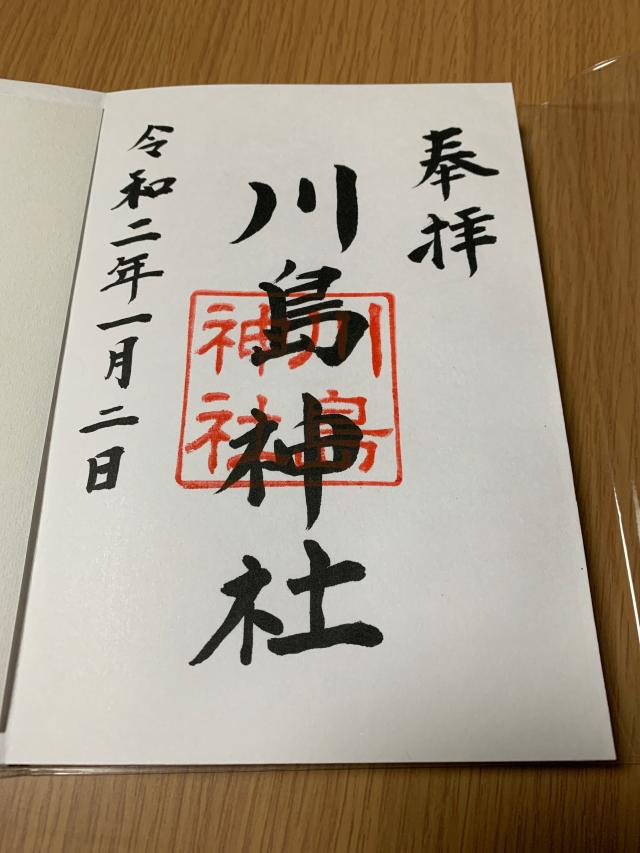 奉拝
川島神社
川島
神社
令和二年一月二日